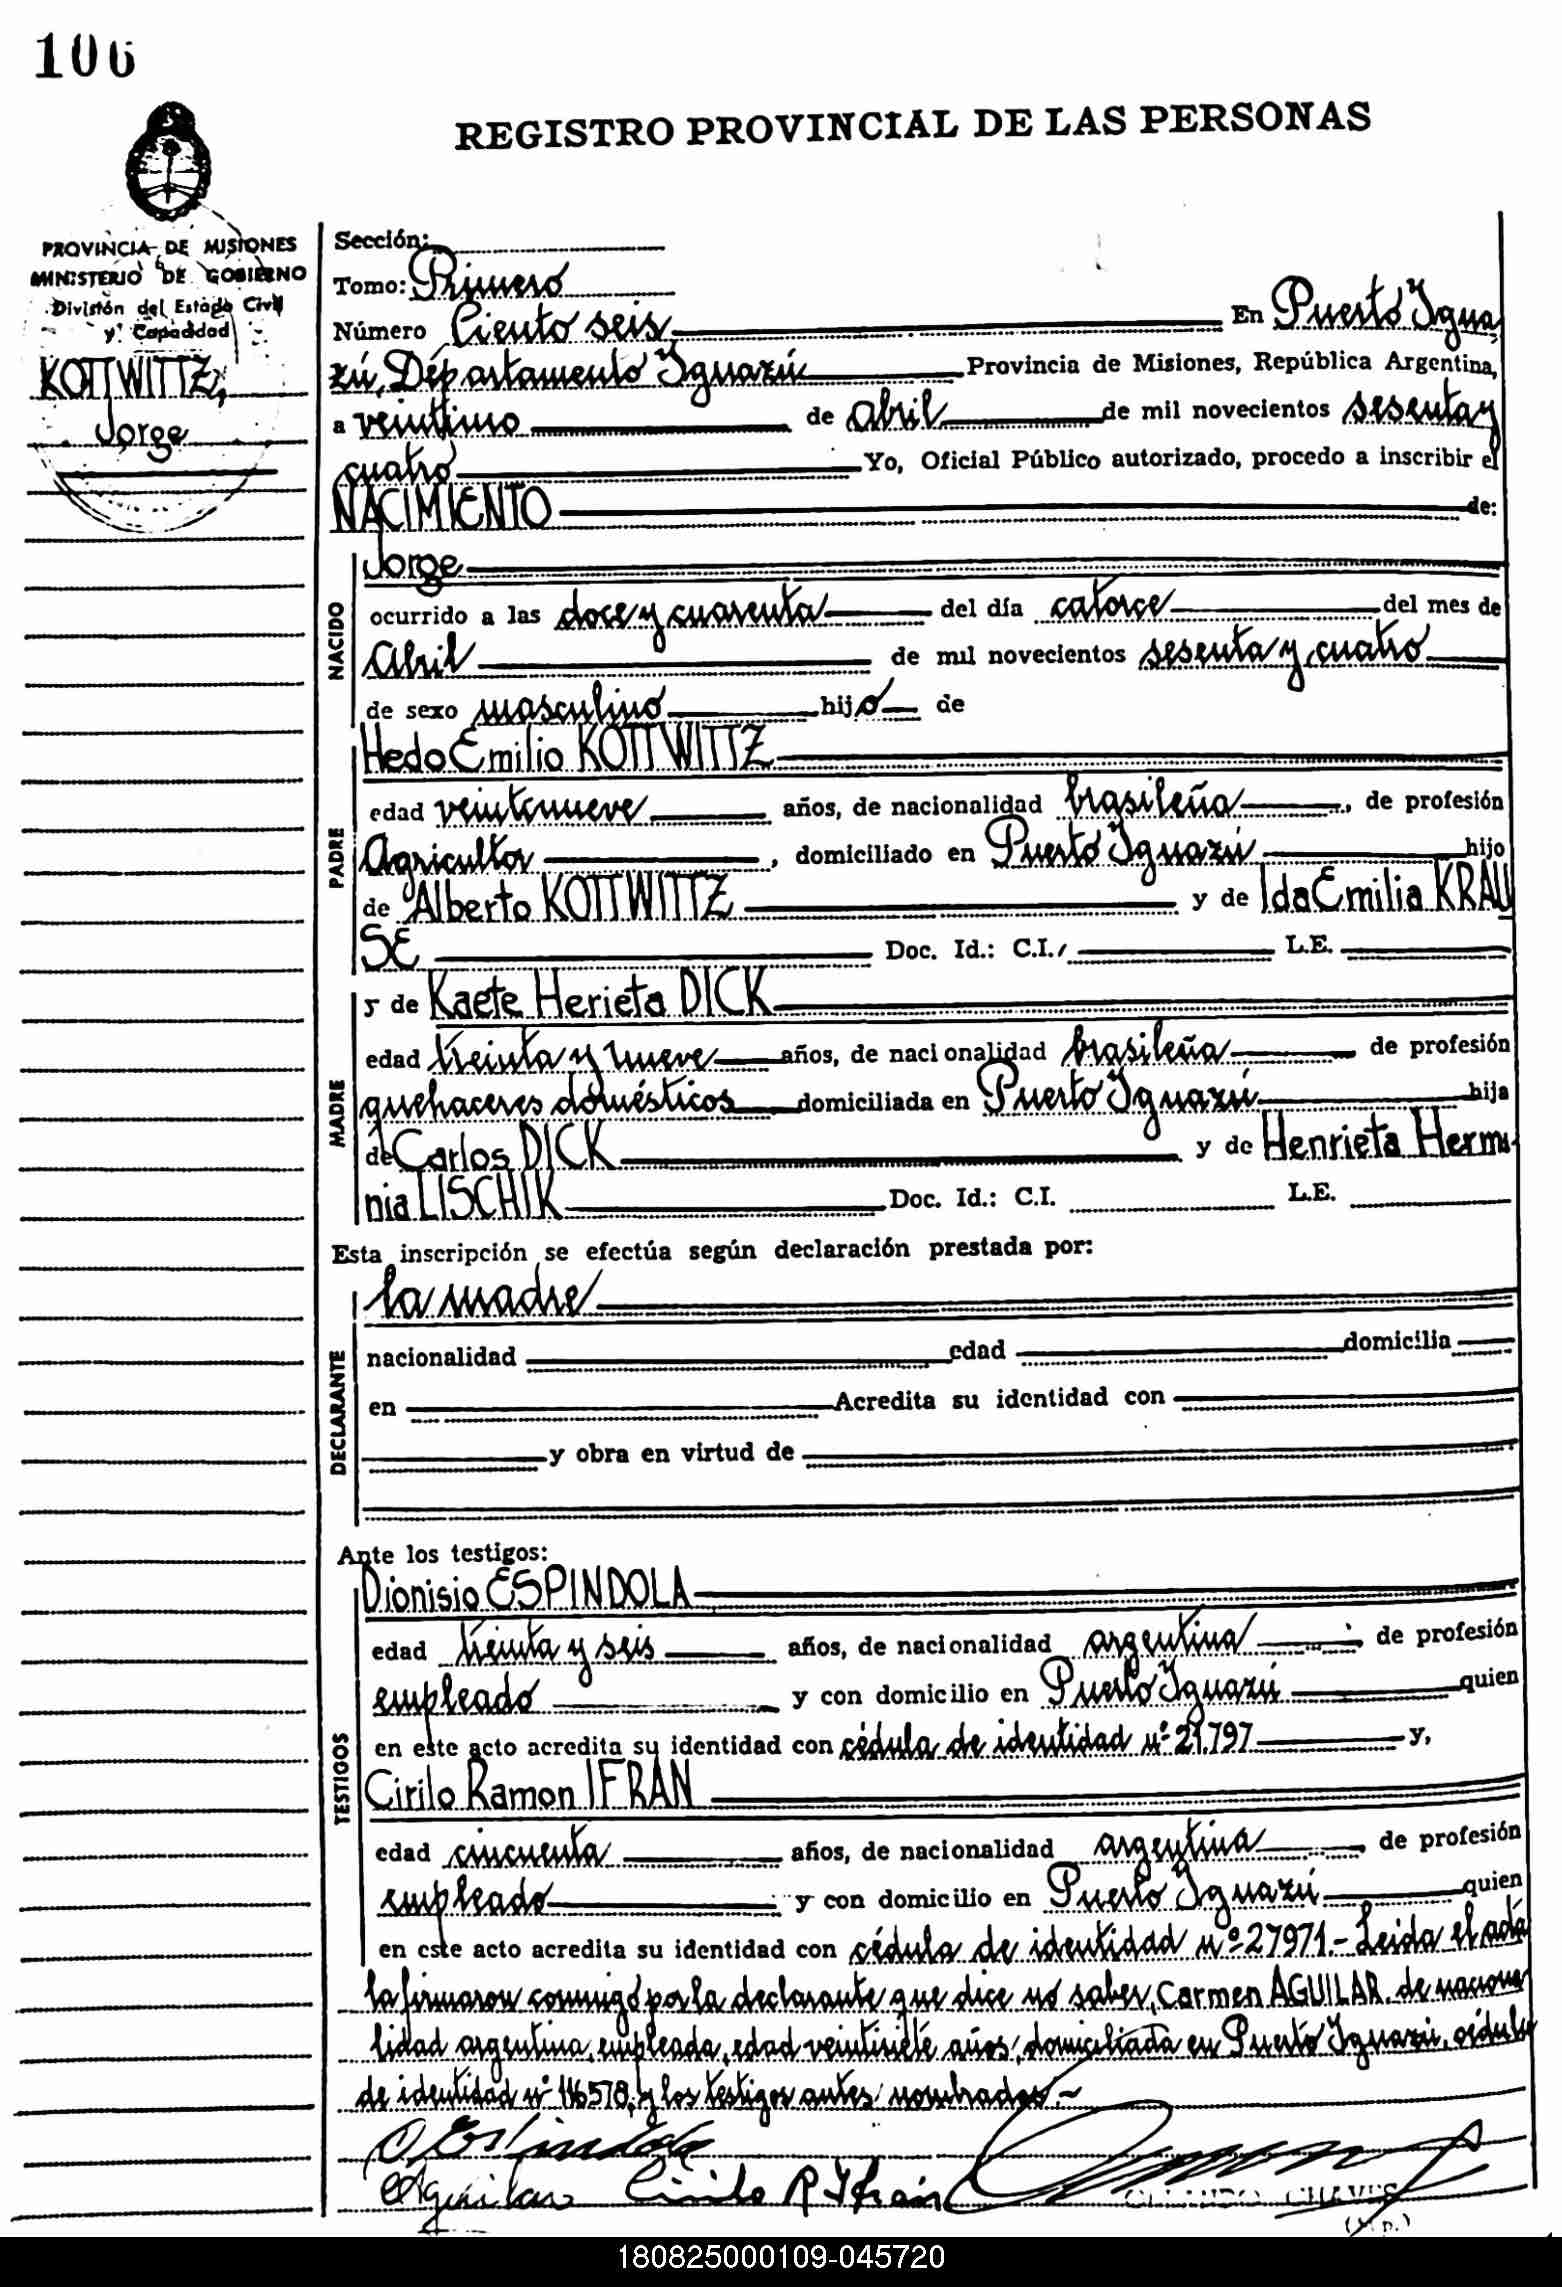 106
REGISTRO PROVINCIAL DE LAS PERSONAS
PROVINCIA DE MISIONES
MINISTERIO DE GOBIERNO
División del Estado Civil
y Capacidad
KOTTWITTZ,
Jorge
Sección:
Tomo: Primero
Número Ciento seis En Puerto Igua
zú, Departamento Iguazú Provincia de Misiones, República Argentina,
a veintiuno de abril de mil novecientos sesenta y
cuatro Yo, Oficial Público autorizado, procedo a inscribir el
NACIMIENTO de:
NACIDO
Jorge
ocurrido a las doce y cuarenta del día catorce del mes de
Abril de mil novecientos sesenta y cuatro
de sexo masculino hijo de
PADRE
Hedo Emilio KOTTWITTZ
edad veintinueve años, de nacionalidad brasileña, de profesión
Agricultor, domiciliado en Puerto Iguazú hijo
de Alberto KOTTWITTZ y de Ida Emilia KRAU
SE Doc. Id.: C.I. L.E.
MADRE
y de Kaete Herieta DICK
edad treinta y nueve años, de nacionalidad brasileña de profesión
quehaceres domésticos domiciliada en Puerto Iguazú hija
de Carlos DICK y de Henrieta Hermi
nia LISCHIK Doc. Id.: C.I. L.E.
Esta inscripción se efectúa según declaración prestada por:
DECLARANTE
la madre
nacionalidad edad domicilia
en Acredita su identidad con
y obra en virtud de
Ante los testigos:
TESTIGOS
Dionisio ESPINDOLA
edad treinta y seis años, de nacionalidad argentina, de profesión
empleado y con domicilio en Puerto Iguazú quien
en este acto acredita su identidad con cédula de identidad nº 21.797 y,
Cirilo Ramon IFRAN
edad cincuenta años, de nacionalidad argentina, de profesión
empleado y con domicilio en Puerto Iguazú quien
en este acto acredita su identidad con cédula de identidad nº 27971.- Leida el acta
la firmaron conmigo por la declarante que dice no saber, Carmen AGUILAR, de naciona
lidad argentina, empleada, edad veintisiete años, domiciliada en Puerto Iguazú, cédula
de identidad nº 116578, y los testigos antes nombrados.-
D. Espindola
CAguilar Cirilo R Ifran
CHAVES
180825000109-045720